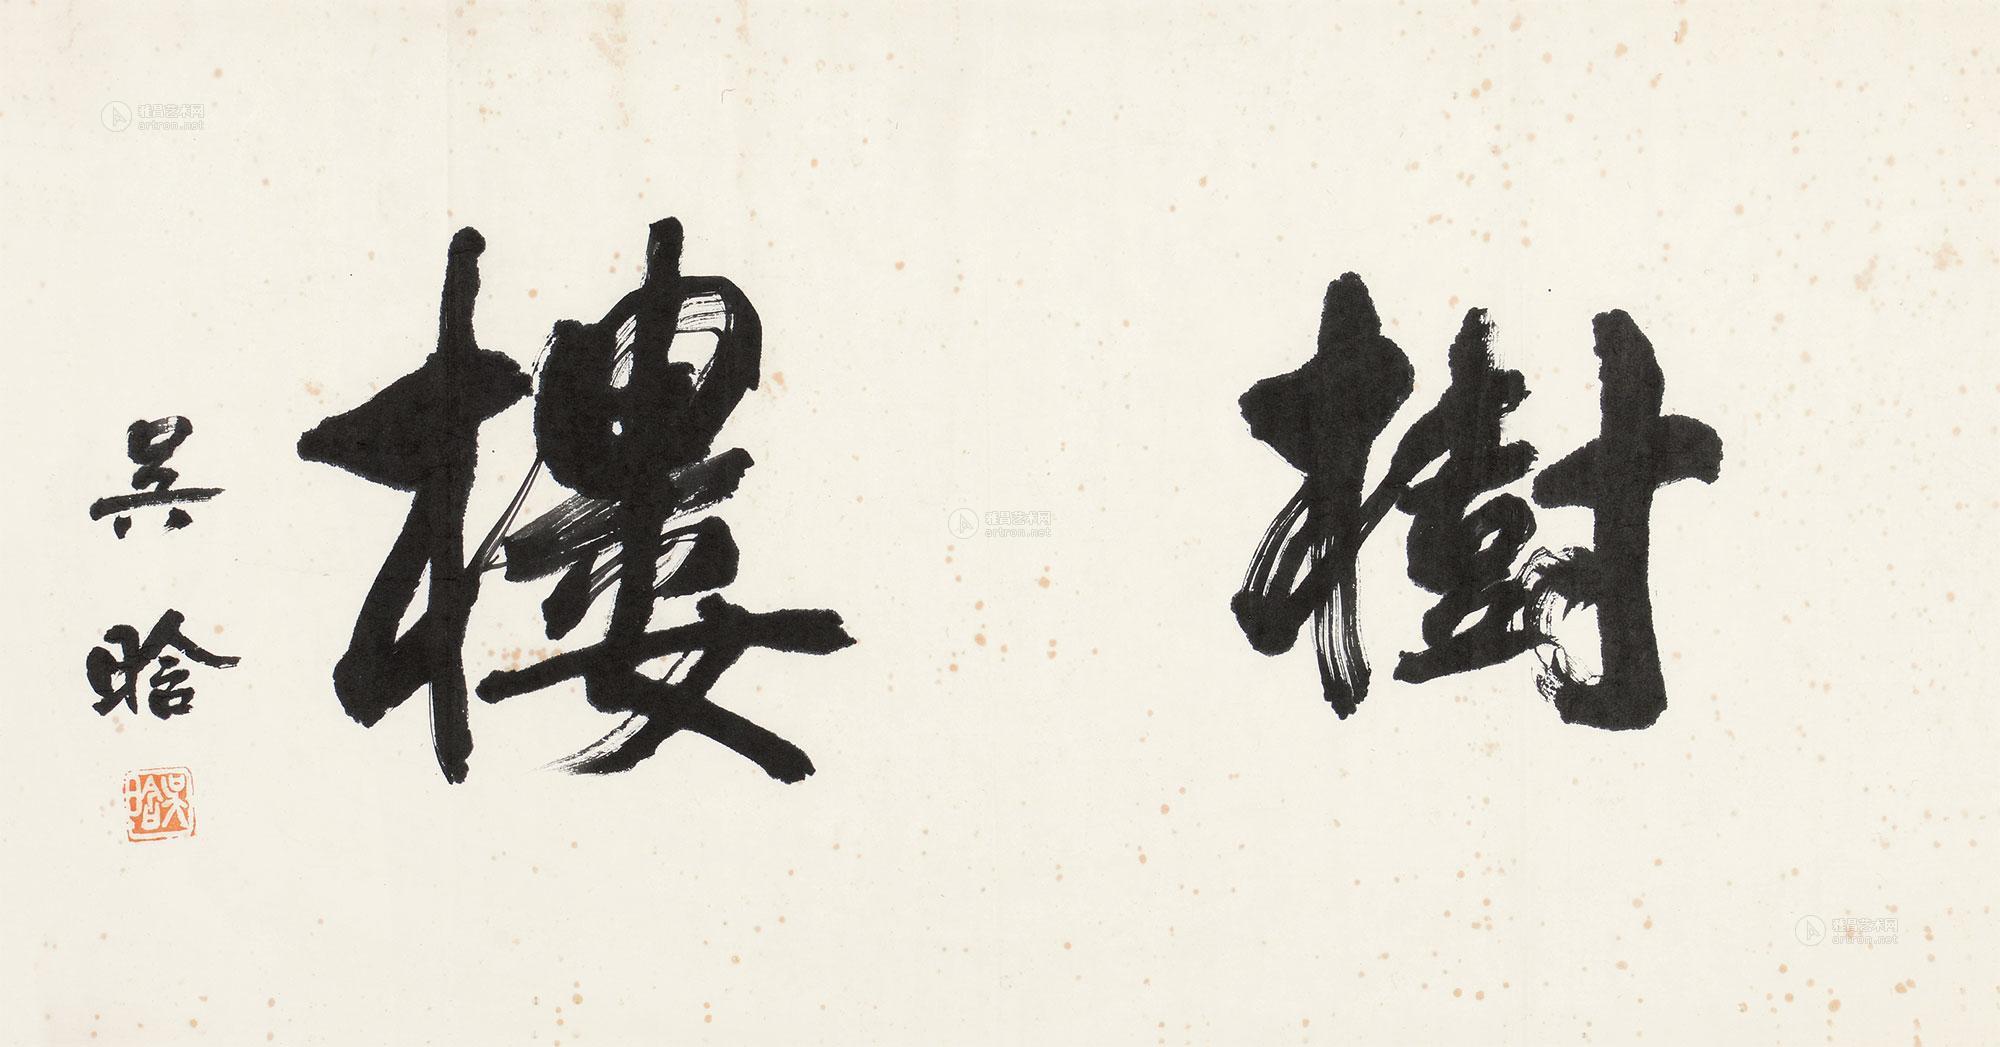 樹樓
吳晗
吳晗
雅昌艺术网
artron.net
雅昌艺术网
artron.net
雅昌艺术网
artron.net